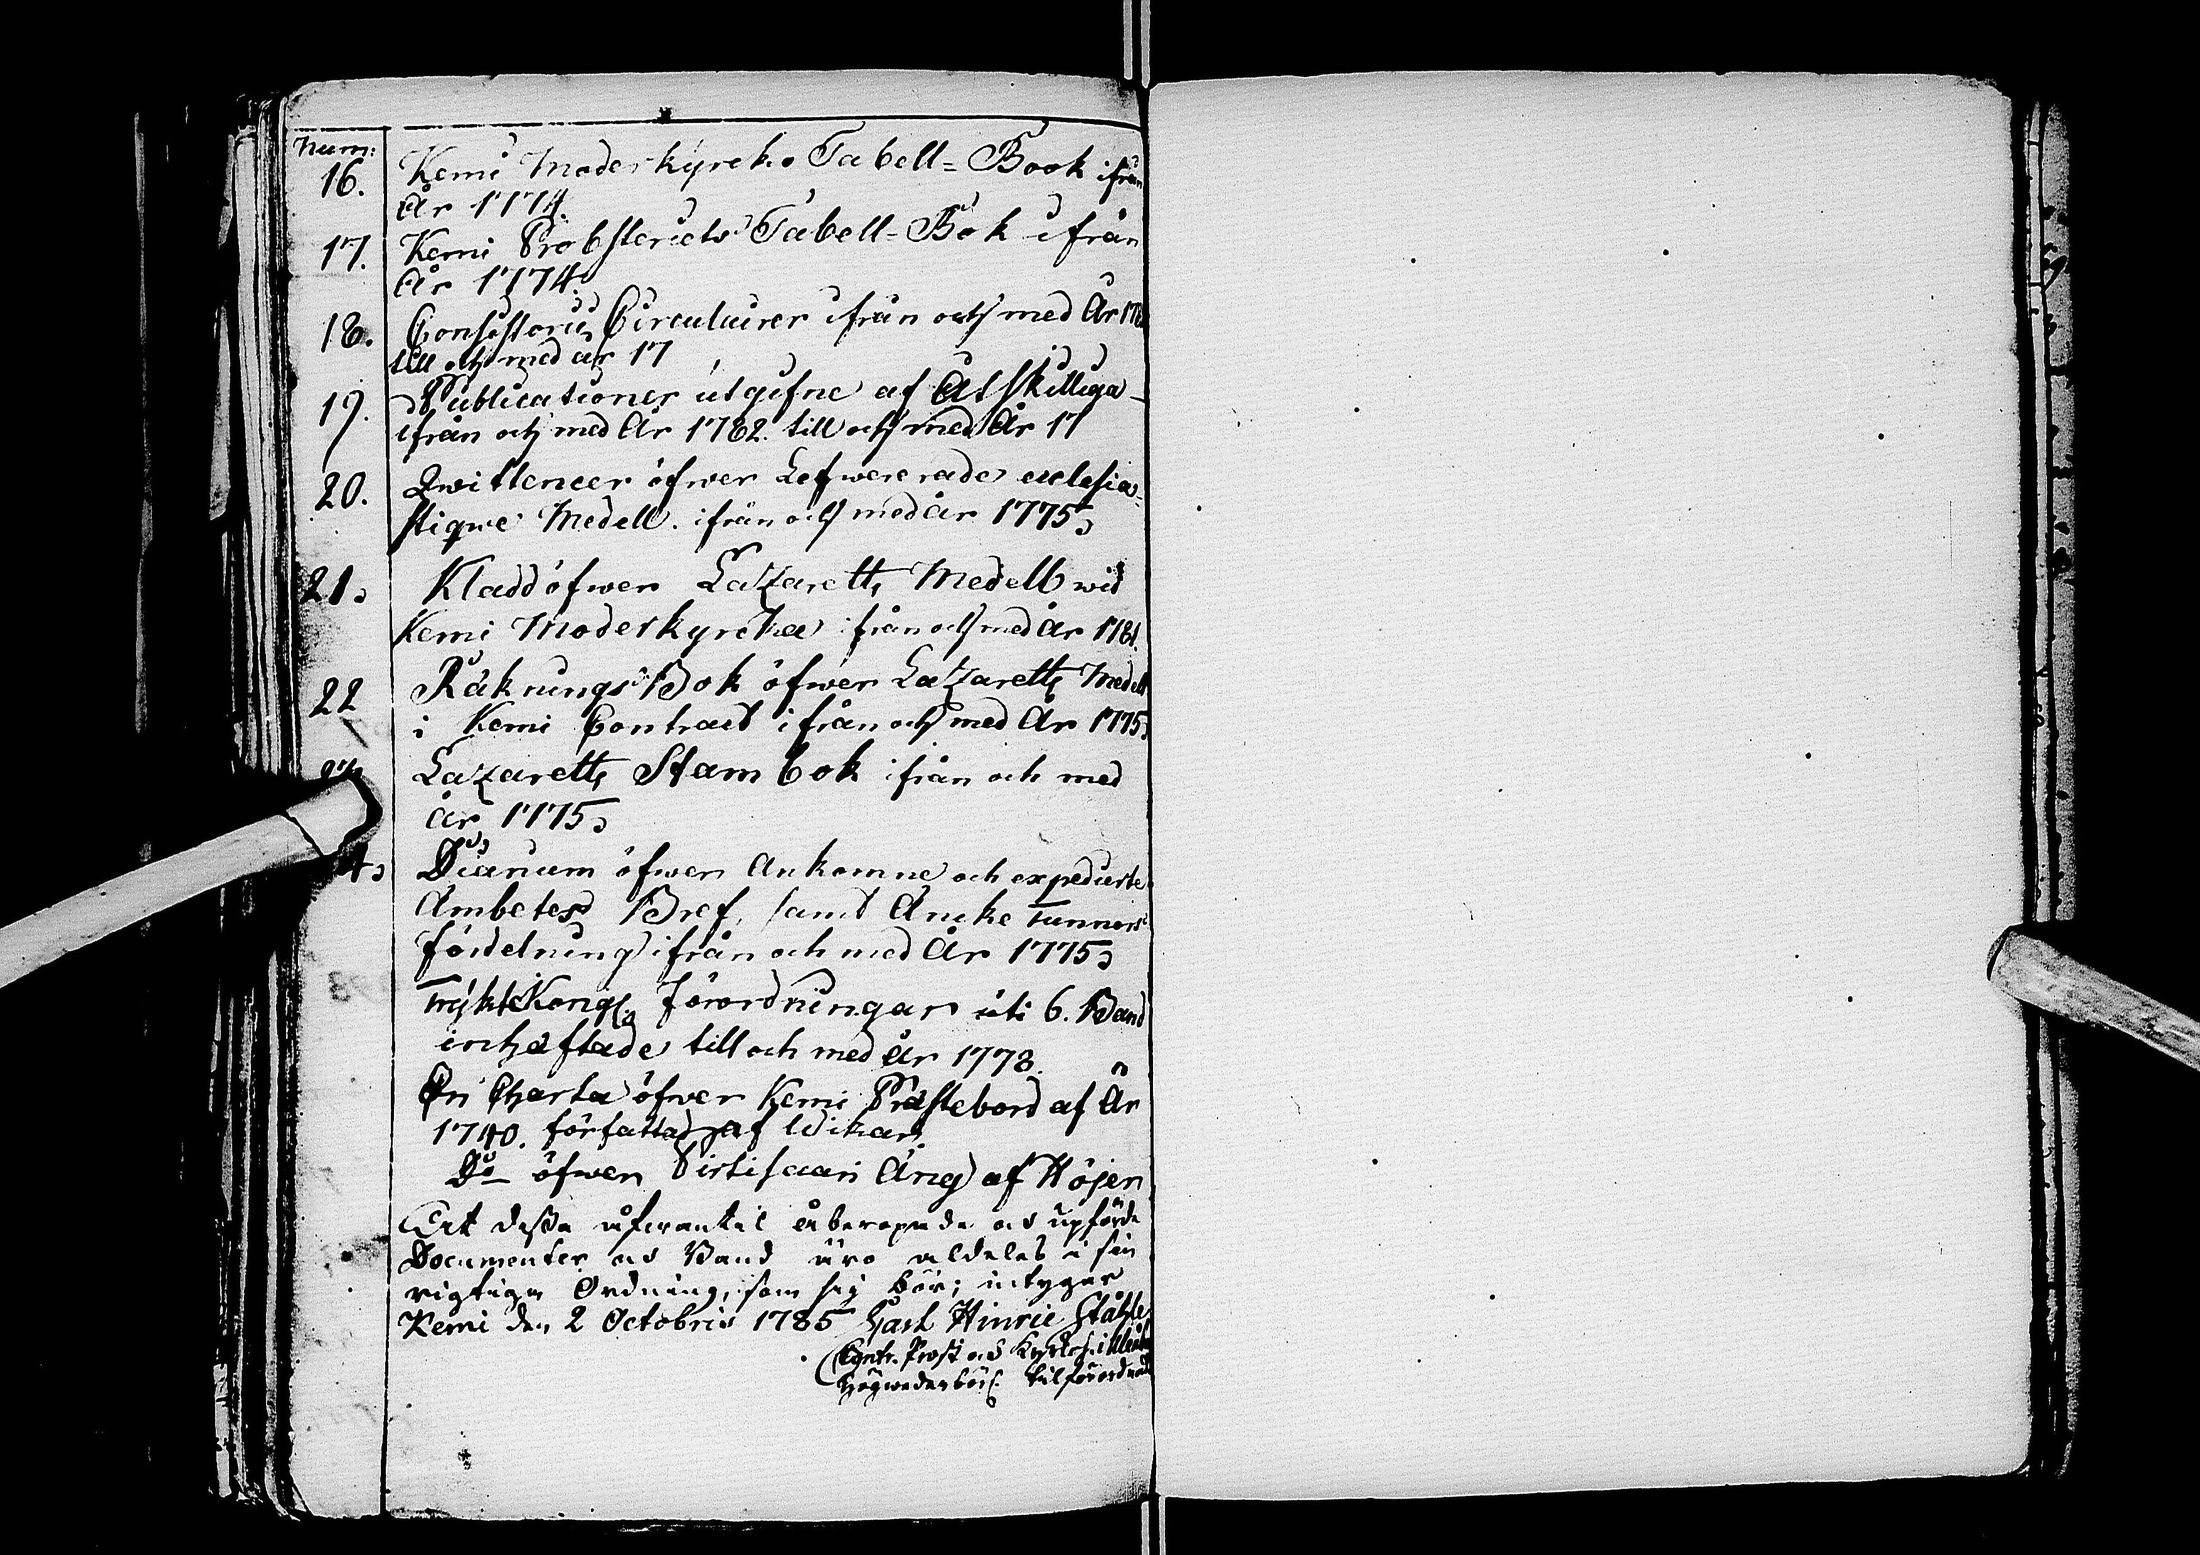 Num:
16. Kemi Moderkyrcko Tabell-Book ifrån
År 1774.
17. Kemi Probsteriets Tabell-Bok ifrån
År 1774.
18. Consistorii Circulairer ifrån och med År 178
till och med år 17
19. Publicationer utgifne af Åtskilliga
ifrån och med År 1782. till och med År 17
20. Qwittencer öfwer Lefwererade ecclesia-
stique Medell. ifrån och med år 1775,
21, Kladd öfwer Lazaretts Medell wid
Kemi Moderkyrcka ifrån och med År 1781.
22 Räknings Bok öfwer Lazaretts Medell
i Kemi Contract ifrån och med År 1775,
Lazaretts Stambok ifrån och med
år 1775,
4, Diarium öfwer Ankomne och expedierte
Ämbetes Bref, samt Äncke Tunnors
fördelning ifrån och med År 1775,
Tryckte Kongl. Förordningar uti 6. Band
inhäftade till och med år 1778.
En Charta öfwer Kemi Prästebord af År
1740. författad af Wikar.
Do öfwer Pirtisaari Äng af Höjer
At dessa åberopade och upförde
Documenter och Band äro aldeles i sin
rigtiga Ordning, som sig bör; intygar
Kemi den 2 Octobris 1785 Carl Hinric Ståhle
Contr. Prost och Kyrkoh. i
tilförordnad